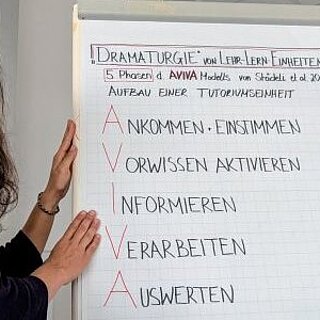 „DRAMATURGIE" VON LEHR-LERN EINHEITEN
5 Phasen d. AVIVA Modells von Städeli et al 20
AUFBAU EINER TUTORIUMSEINHEIT
ANKOMMEN · EINSTIMMEN
VORWISSEN AKTIVIEREN
INFORMIEREN
VERARBEITEN
AUSWERTEN